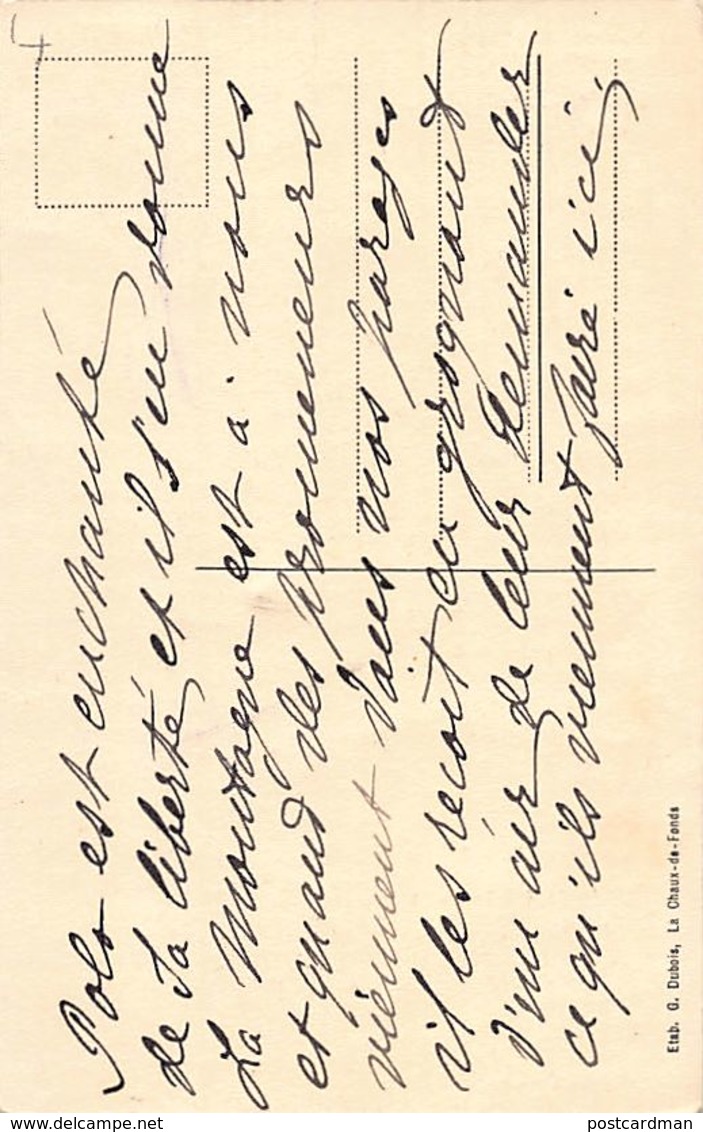 Polo est enchanté
de sa liberté et il s'en donne
La montagne est à nous
et quand des promeneurs
viennent dans nos parages
il les recoit en grognant
d'un air de leur demander
ce qu'ils viennent faire ici,
Etab. G. Dubois, La Chaux-de-Fonds
postcardman